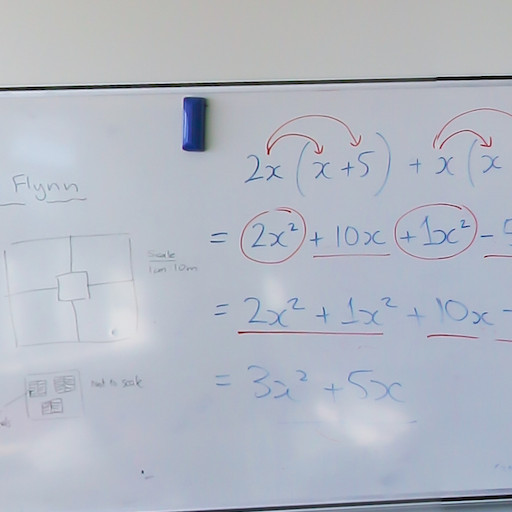 Flynn
Scale
1cm 10m
not to scale
2x(x+5) + x(x
= 2x² + 10x + 1x² - 5
= 2x² + 1x² + 10x -
= 3x² + 5x